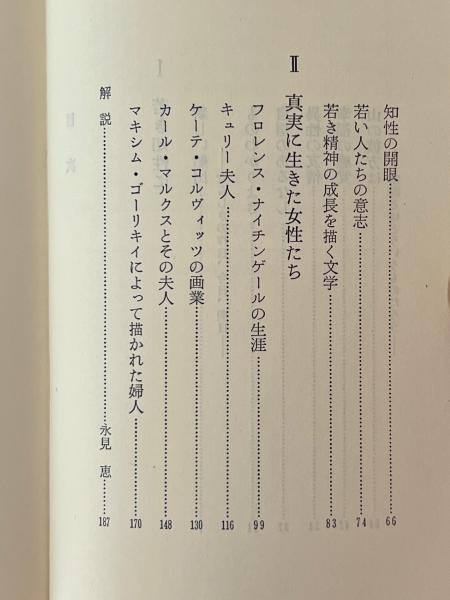 知性の開眼……66
若い人たちの意志……74
若き精神の成長を描く文学……83
Ⅱ 真実に生きた女性たち
フロレンス・ナイチンゲールの生涯……99
キュリー夫人……116
ケーテ・コルヴィッツの画業……130
カール・マルクスとその夫人……148
マキシム・ゴーリキイによって描かれた婦人……170
解説……永見 恵 187